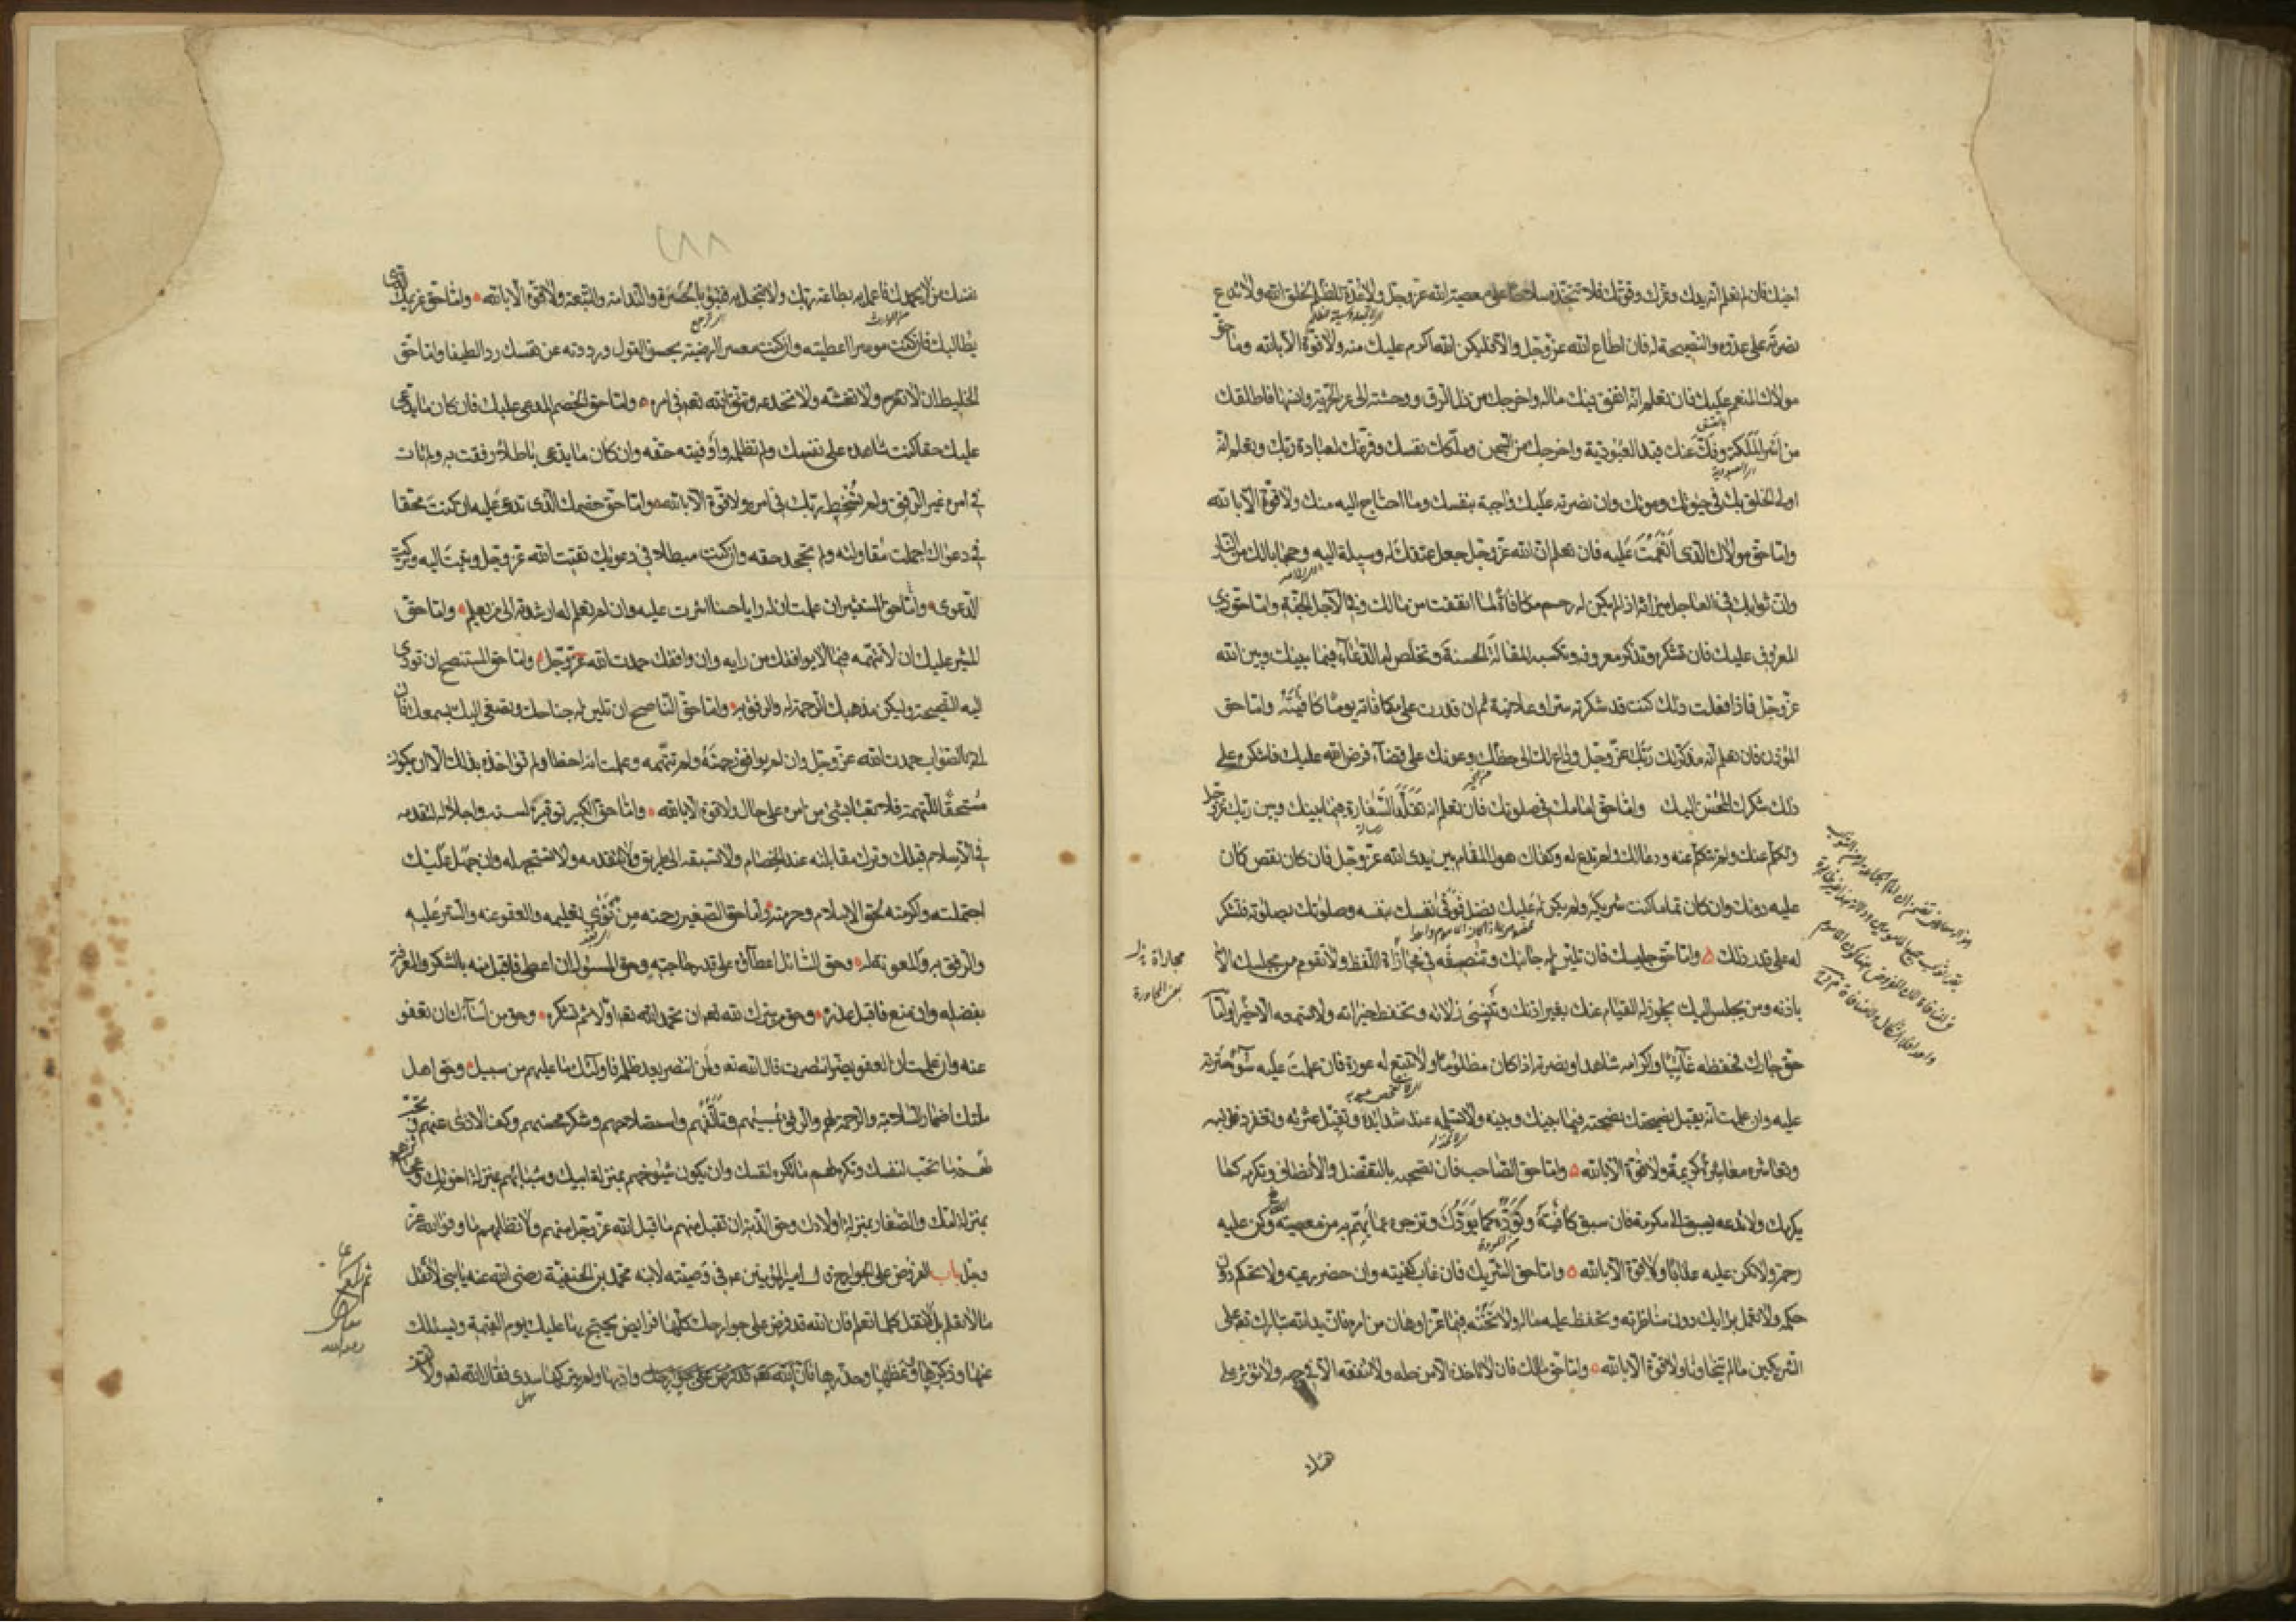 اخيك فان تعلم انه يدك وعزك وقوتك فلا تتخذه سلاحا على معصية الله عز وجل ولا عدة للظلم لخلق الله ولا تدع
نصرته على عدوه والنصيحة له فان اطاع الله عز وجل والا فليكن الله اكرم عليك منه ولا قوة الا بالله واما حق
مولاك المنعم عليك فان تعلم انه انفق فيك ماله واخرجك من ذل الرق ووحشته الى عز الحرية وانسها فاطلقك
من اسر الملكة وفك عنك قيد العبودية واخرجك من السجن وملكك نفسك وفرغك لعبادة ربك وتعلم انه
اولى الخلق بك في حيوتك وموتك وان نصرته عليك واجبة بنفسك وما احتاج اليه منك ولا قوة الا بالله
واما حق مولاك الذى انعمت عليه فان تعلم ان الله عز وجل جعل عتقك له وسيلة اليه وحجابا لك من النار
وان ثوابك في العاجل ميراثه اذا لم يكن له رحم مكافاة لما انفقت من مالك وفي الآجل الجنة واما حق ذى
المعروف عليك فان تشكره وتذكر معروفه وتكسبه المقالة الحسنة وتخلص له الدعاء فيما بينك وبين الله
عز وجل فاذا فعلت ذلك كنت قد شكرته سرا وعلانية ثم ان قدرت على مكافاته يوما كافيته واما حق
المؤذن فان تعلم انه مذكر لك ربك عز وجل وداع لك الى حظك وعونك على قضاء فرض الله عليك فاشكره على
ذلك شكرك للمحسن اليك واما حق امامك في صلوتك فان تعلم انه تقلد السفارة فيما بينك وبين ربك عز وجل
وتكلم عنك ولم تتكلم عنه ودعا لك ولم تدع له وكفاك هول المقام بين يدى الله عز وجل فان كان نقص كان
عليه دونك وان كان تماما كنت شريكه ولم يكن له عليك فضل فوقى نفسك بنفسه وصلوتك بصلوته فتشكر
له على قدر ذلك ه واما حق جليسك فان تلين له جانبك وتنصفه في مجازاة اللفظ ولا تقوم من مجلسك الا
باذنه ومن يجلس اليك يجوز له القيام عنك بغير اذنك وتنسى زلاته وتحفظ خيراته ولا تسمعه الا خيرا واما
حق جارك فحفظه غائبا واكرامه شاهدا ونصرته اذا كان مظلوما ولا تتبع له عورة فان علمت عليه سوءا سترته
عليه وان علمت انه يقبل نصيحتك نصحته فيما بينك وبينه ولا تسلمه عند شدائده وتقيل عثرته وتغفر ذنوبه
وتعاشره معاشرة كريمة ولا قوة الا بالله ه واما حق الصاحب فان تصحبه بالتفضل والانصاف وتكرمه كما
يكرمك ولا تدعه يسبق الى مكرمة فان سبق كافيته وتوده كما يودك وتزجره عما يهم به من معصية وكن عليه
رحمة ولا تكن عليه عذابا ولا قوة الا بالله ه واما حق الشريك فان غاب كفيته وان حضر رعيته ولا تحكم دون
حكمه ولا تعمل برايك دون مناظرته وتحفظ عليه ماله ولا تخنه فيما عز او هان من امره فان يد الله تبارك وتعالى على
الشريكين ما لم يتخاونا ولا قوة الا بالله ه واما حق مالك فان لا تاخذه الا من حله ولا تنفقه الا في وجهه ولا تؤثر على
٢٨٨
نفسك من لا يحمدك فاعمل به بطاعة ربك ولا تبخل به فتبوء بالحسرة والندامة والتبعة ولا قوة الا بالله ه واما حق غريمك الذى
يطالبك فان كنت موسرا اعطيته وان كنت معسرا ارضيته بحسن القول ورددته عن نفسك ردا لطيفا واما حق
الخليط ان لا تغره ولا تغشه ولا تخدعه وتتقى الله تعالى في امره ه واما حق الخصم المدعى عليك فان كان ما يدعى
عليك حقا كنت شاهده على نفسك ولم تظلمه واوفيته حقه وان كان ما يدعى باطلا رفقت به ولم تات
في امره غير الرفق ولم تسخط ربك في امره ولا قوة الا بالله واما حق خصمك الذى تدعى عليه ان كنت محقا
في دعواك اجملت مقاولته ولم تجحد حقه وان كنت مبطلا في دعويك اتقيت الله عز وجل وتبت اليه وتركت
الدعوى واما حق المستشير ان علمت ان له رايا حسنا اشرت عليه وان لم تعلم له ارشدته الى من يعلم ه واما حق
المشير عليك ان لا تتهمه فيما لا يوافقك من رايه وان وافقك حمدت الله عز وجل واما حق المستنصح ان تودى
اليه النصيحة وليكن مذهبك الرحمة له والرفق به ه واما حق الناصح ان تلين له جناحك وتصغى اليه بسمعك فان
اتى بالصواب حمدت الله عز وجل وان لم يوافق رحمته ولم تتهمه وعلمت انه اخطا ولم تؤاخذه بذلك الا ان يكون
مستحقا للتهمة فلا تعبأ بشئ من امره على حال ولا قوة الا بالله ه واما حق الكبير توقيره لسنه واجلاله لتقدمه
في الاسلام قبلك وترك مقابلته عند الخصام ولا تسبقه الى طريق ولا تتقدمه ولا تستجهله وان جهل عليك
احتملته واكرمته لحق الاسلام وحرمته واما حق الصغير رحمته من نوى تعليمه والعفو عنه والستر عليه
والرفق به والمعونة له ه وحق السائل اعطاؤه على قدر حاجته وحق المسئول ان اعطى فاقبل منه بالشكر والمعرفة
بفضله وان منع فاقبل عذره ه وحق من سرك لله تعالى ان تحمد الله تعالى اولا ثم تشكره ه وحق من اساءك ان تعفو
عنه وان علمت ان العفو يضر انتصرت قال الله تعالى ولمن انتصر بعد ظلمه فاولئك ما عليهم من سبيل ه وحق اهل
ملتك اضمار السلامة والرحمة لهم والرفق بمسيئهم وتالفهم واستصلاحهم وشكر محسنهم وكف الاذى عنهم وتحب
لهم ما تحب لنفسك وتكره لهم ما تكره لنفسك وان يكون شيوخهم بمنزلة ابيك وشبابهم بمنزلة اخوتك وعجائزهم
بمنزلة امك والصغار بمنزلة اولادك وحق الذمة ان تقبل منهم ما قبل الله عز وجل منهم ولا تظلمهم ما وفوا لله عز
وجل باب الفروض على الجوارح قال امير المؤمنين ع في وصيته لابنه محمد بن الحنفية رضى الله عنه يا بنى لا تقل
ما لا تعلم بل لا تقل كلما تعلم فان الله قد فرض على جوارحك كلها فرايض يحتج بها عليك يوم القيمة ويسئلك
عنها وذكرها ووعظها وحذرها وادبها ولم يتركها سدى فقال الله تعالى ولا